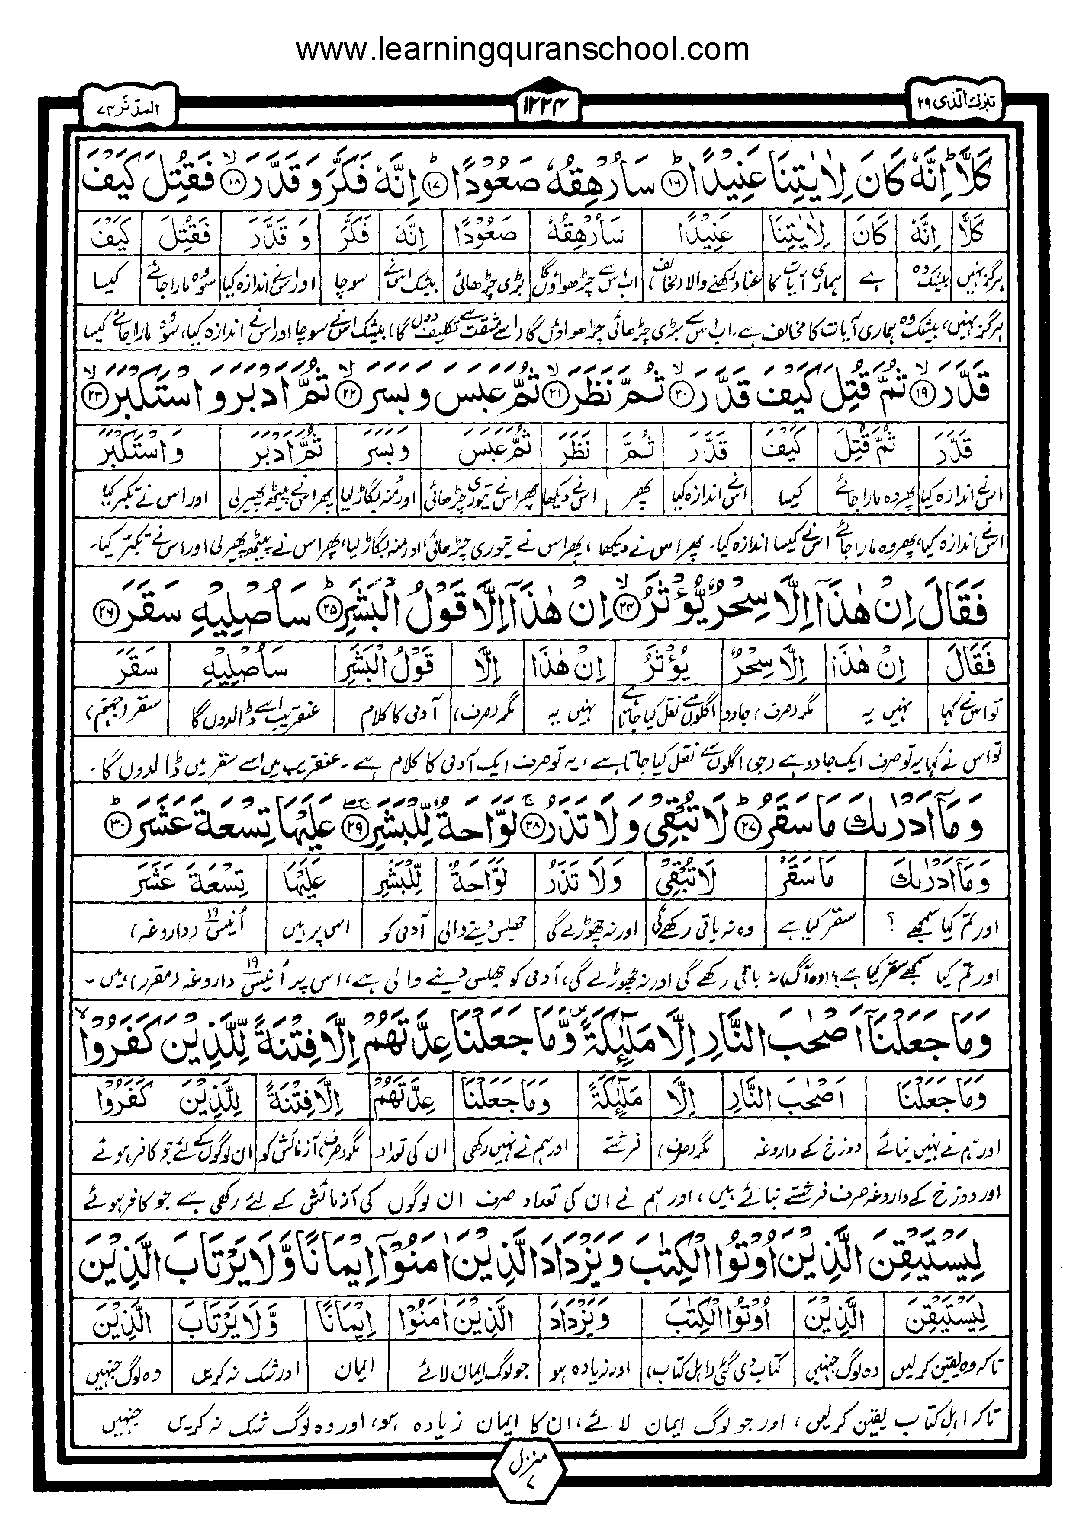 www.learningquranschool.com
تبٰرك الّذى ٢٩
١٢٢٤
المدّثّر ٧٤
كَلَّا ؕ اِنَّهٗ كَانَ لِاٰيٰتِنَا عَنِيْدًا ؕ﴿۱۶﴾ سَاُرْهِقُهٗ صَعُوْدًا ؕ﴿۱۷﴾ اِنَّهٗ فَكَّرَ وَ قَدَّرَ ۙ﴿۱۸﴾ فَقُتِلَ كَيْفَ
كَلَّا اِنَّهٗ كَانَ لِاٰيٰتِنَا عَنِيْدًا سَاُرْهِقُهٗ صَعُوْدًا اِنَّهٗ فَكَّرَ وَ قَدَّرَ فَقُتِلَ كَيْفَ
ہرگز نہیں بیشک وہ ہے ہماری آیات کا عناد رکھنے والا، مخالف اب اس سے چڑھواؤں گا بڑی چڑھائی بیشک اس نے سوچا اور اس نے اندازہ کیا سو وہ مارا جائے کیسا
ہرگز نہیں، بیشک وہ ہماری آیات کا مخالف ہے، اب اس سے بڑی چڑھائی چڑھواؤں گا (اسے مشقت سے تکلیف دوں گا) بیشک اس نے سوچا اور اس نے اندازہ کیا، سو وہ مارا جائے کیسا
قَدَّرَ ۙ﴿۱۹﴾ ثُمَّ قُتِلَ كَيْفَ قَدَّرَ ۙ﴿۲۰﴾ ثُمَّ نَظَرَ ۙ﴿۲۱﴾ ثُمَّ عَبَسَ وَ بَسَرَ ۙ﴿۲۲﴾ ثُمَّ اَدْبَرَ وَ اسْتَكْبَرَ ۙ﴿۲۳﴾
قَدَّرَ ثُمَّ قُتِلَ كَيْفَ قَدَّرَ ثُمَّ نَظَرَ ثُمَّ عَبَسَ وَ بَسَرَ ثُمَّ اَدْبَرَ وَ اسْتَكْبَرَ
اس نے اندازہ کیا پھر وہ مارا جائے کیسا اس نے اندازہ کیا پھر اس نے دیکھا پھر اس نے تیوری چڑھائی اور منہ بگاڑ لیا پھر اس نے پیٹھ پھیر لی اور اس نے تکبر کیا
اس نے اندازہ کیا، پھر وہ مارا جائے اس نے کیسا اندازہ کیا۔ پھر اس نے دیکھا، پھر اس نے تیوری چڑھائی اور منہ بگاڑ لیا، پھر اس نے پیٹھ پھیر لی اور اس نے تکبر کیا۔
فَقَالَ اِنْ هٰذَاۤ اِلَّا سِحْرٌ يُّؤْثَرُ ۙ﴿۲۴﴾ اِنْ هٰذَاۤ اِلَّا قَوْلُ الْبَشَرِ ؕ﴿۲۵﴾ سَاُصْلِيْهِ سَقَرَ ﴿۲۶﴾
فَقَالَ اِنْ هٰذَا اِلَّا سِحْرٌ يُؤْثَرُ اِنْ هٰذَا اِلَّا قَوْلُ الْبَشَرِ سَاُصْلِيْهِ سَقَرَ
تو اس نے کہا نہیں یہ مگر (صرف) جادو اگلوں سے نقل کیا جاتا ہے نہیں یہ مگر (صرف) آدمی کا کلام عنقریب اسے ڈالدوں گا سقر (جہنم)
تو اس نے کہا یہ تو صرف ایک جادو ہے (جو) اگلوں سے نقل کیا جاتا ہے، یہ تو صرف ایک آدمی کا کلام ہے۔ عنقریب میں اسے سقر میں ڈالدوں گا۔
وَ مَاۤ اَدْرٰىكَ مَا سَقَرُ ؕ﴿۲۷﴾ لَا تُبْقِيْ وَ لَا تَذَرُ ۚ﴿۲۸﴾ لَوَّاحَةٌ لِّلْبَشَرِ ﴿۲۹﴾ عَلَيْهَا تِسْعَةَ عَشَرَ ؕ﴿۳۰﴾
وَ مَاۤ اَدْرٰىكَ مَا سَقَرُ لَا تُبْقِيْ وَلَا تَذَرُ لَوَّاحَةٌ لِّلْبَشَرِ عَلَيْهَا تِسْعَةَ عَشَرَ
اور تم کیا سمجھے؟ سقر کیا ہے وہ نہ باقی رکھے گی اور نہ چھوڑے گی جھلس دینے والی آدمی کو اس پر ہیں اُنیس ١٩ (داروغہ)
اور تم کیا سمجھے سقر کیا ہے؟ (وہ آگ) نہ باقی رکھے گی اور نہ چھوڑے گی، آدمی کو جھلس دینے والی ہے، اس پر اُنیس ١٩ داروغہ (مقرر) ہیں۔
وَ مَا جَعَلْنَاۤ اَصْحٰبَ النَّارِ اِلَّا مَلٰٓئِكَةً ۪ وَّ مَا جَعَلْنَا عِدَّتَهُمْ اِلَّا فِتْنَةً لِّلَّذِيْنَ كَفَرُوْا ۙ
وَ مَا جَعَلْنَا اَصْحٰبَ النَّارِ اِلَّا مَلٰٓئِكَةً وَ مَا جَعَلْنَا عِدَّتَهُمْ اِلَّا فِتْنَةً لِّلَّذِيْنَ كَفَرُوْا
اور ہم نے نہیں بنائے دوزخ کے داروغہ مگر (صرف) فرشتے اور ہم نے نہیں رکھی ان کی تعداد مگر (صرف) آزمائش کو ان لوگوں کے لئے جو کافر ہوئے
اور دوزخ کے داروغہ صرف فرشتے بنائے ہیں، اور ہم نے ان کی تعداد صرف ان لوگوں کی آزمائش کے لئے رکھی ہے جو کافر ہوئے
لِيَسْتَيْقِنَ الَّذِيْنَ اُوْتُوا الْكِتٰبَ وَ يَزْدَادَ الَّذِيْنَ اٰمَنُوْۤا اِيْمَانًا وَّ لَا يَرْتَابَ الَّذِيْنَ
لِيَسْتَيْقِنَ الَّذِيْنَ اُوْتُوا الْكِتٰبَ وَ يَزْدَادَ الَّذِيْنَ اٰمَنُوْا اِيْمَانًا وَّ لَا يَرْتَابَ الَّذِيْنَ
تاکہ وہ یقین کر لیں وہ لوگ جنہیں کتاب دی گئی (اہل کتاب) اور زیادہ ہو جو لوگ ایمان لائے ایمان اور شک نہ کریں وہ لوگ جنہیں
تاکہ اہل کتاب یقین کر لیں، اور جو لوگ ایمان لائے، ان کا ایمان زیادہ ہو، اور وہ لوگ شک نہ کریں جنہیں
منزل ٧